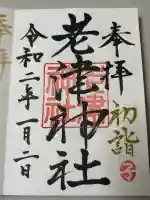 奉拝
初詣
子
老津神社
令和二年一月二日